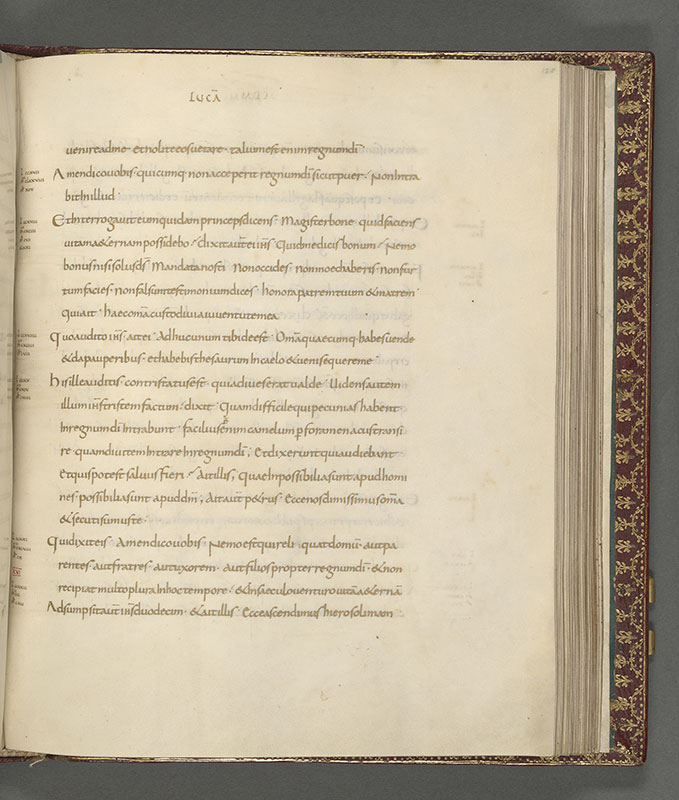 LUCĀ
uenire adme et nolite eos uetare talium est enim regnum dī
Amen dico uobis quicumq; non acceperit regnum dī sicut puer Non intra
bit in illud
Et interrogauit eum quidam princeps dicens Magister bone quid faciens
uitam aeternam possidebo dixit aūt ei ih̄s Quid me dicis bonum Nemo
bonus nisi solus d̄s Mandata nosti Non occides non moechaberis non fur
tum facies non falsum testimonium dices honora patrem tuum & matrem
qui ait haec om̄a custodiui a iuuentute mea
Quo audito ih̄s ait ei Adhuc unum tibi deest Om̄a quaecumq; habes uende
& da pauperibus et habebis thesaurum in caelo & ueni sequere me
his ille auditis contristatus est quia diues erat ualde Uidens autem
illum ih̄s tristem factum dixit Quam difficile qui pecunias habent
In regnum dī intrabunt facilius ē enim camelum p foramen acus transi
re quam diuitem intrare in regnum dī; Et dixerunt qui audiebant
et quis potest saluus fieri Ait illis, Quae inpossibilia sunt apud homi
nes possibilia sunt apud dm̄; Ait aūt petrus Ecce nos dimisimus om̄a
& secuti sumus te
Qui dixit eis Amen dico uobis Nemo est qui reliquat domū aut pa
rentes aut fratres aut uxorem aut filios propter regnum dī & non
recipiat multo plura in hoc tempore & in saeculo uenturo uitā aeternā
Adsumpsit aūt ih̄s duodecim & ait illis Ecce ascendimus hierosolimam